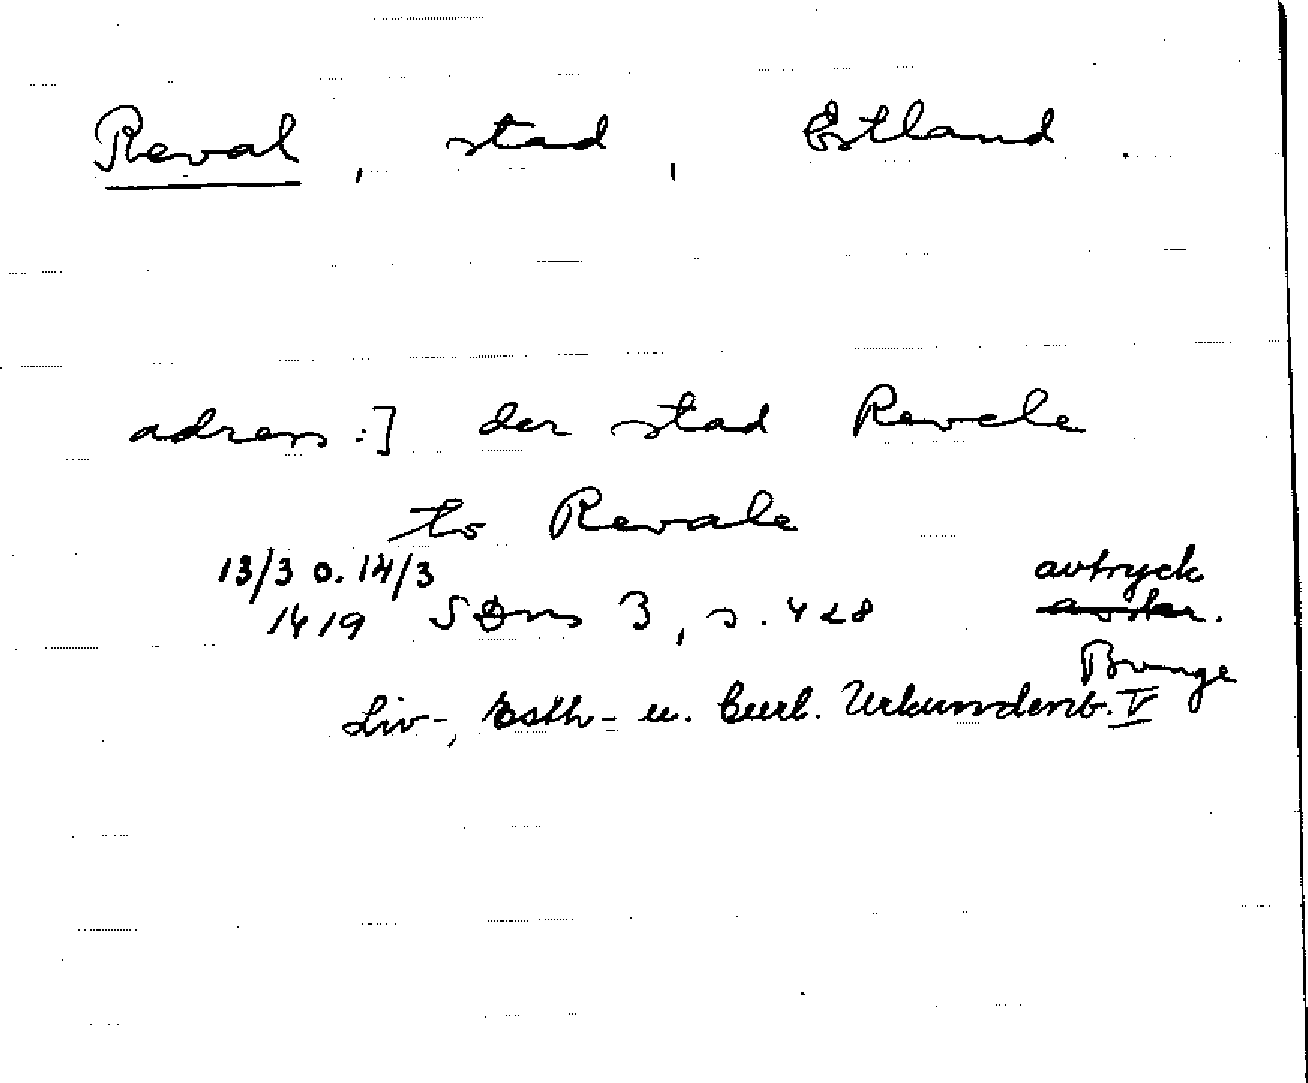 Reval, stad, Estland.
adress:] der stad Revele
to Revale
13/3 o. 14/3 avtryck
1419 SDns 3, s. 428
Bunge
Liv-, Esth- u. Curl. Urkundenb. V